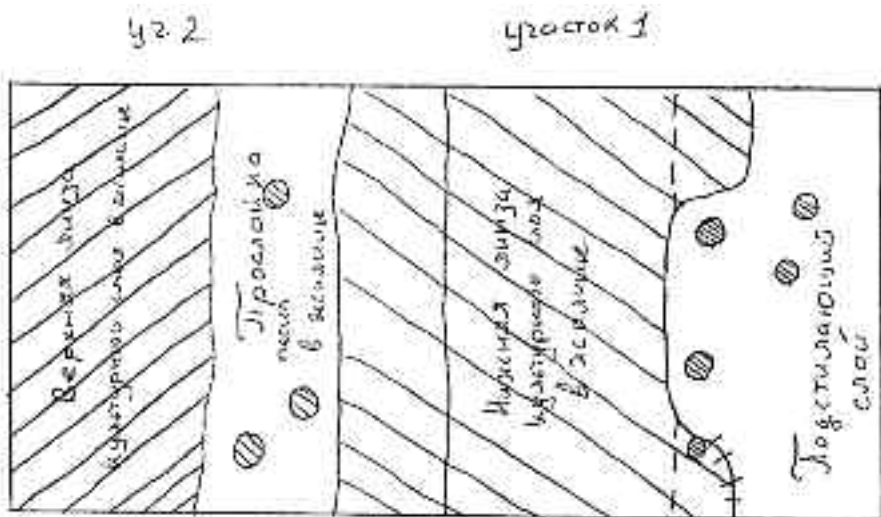 уч. 2
участок 1
Верхняя линза
культурного слоя в жилище
Прослойка
песка
в жилище
Нижняя линза
культурного слоя
в жилище
Подстилающий
слой